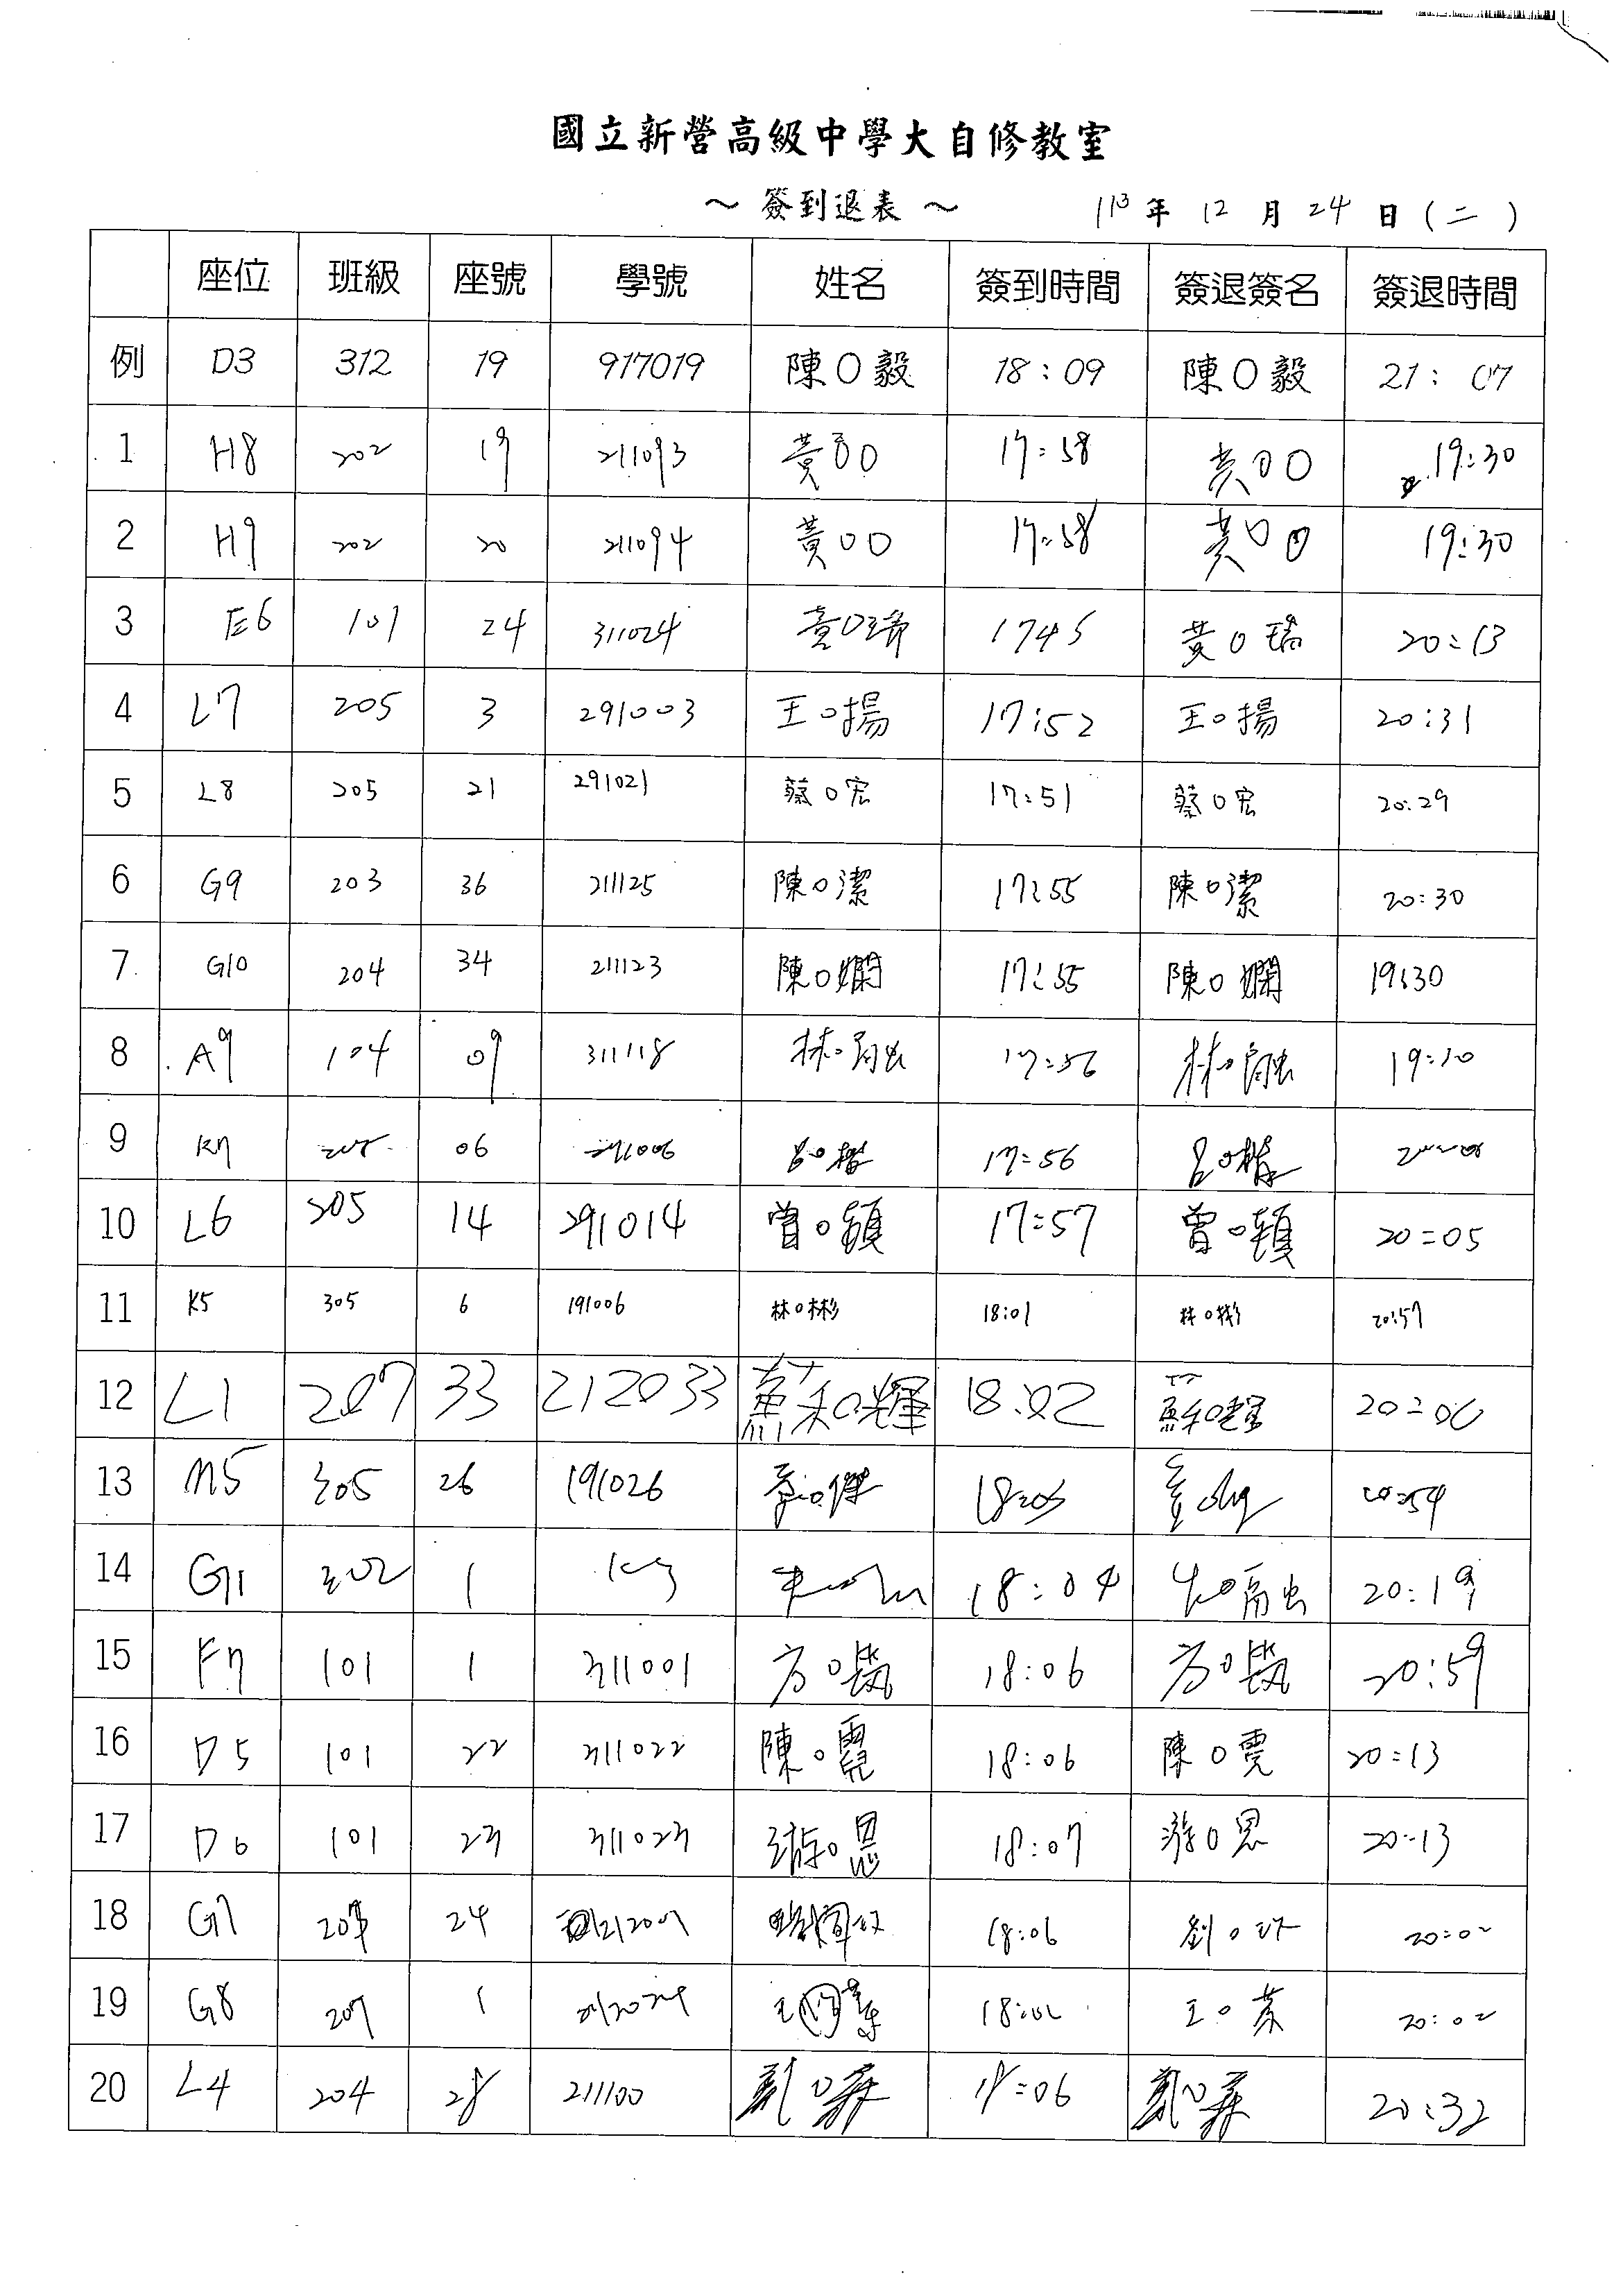 國立新營高級中學大自修教室
～ 簽到退表 ～ 113 年 12 月 24 日 (二)
座位 班級 座號 學號 姓名 簽到時間 簽退簽名 簽退時間
例 D3 312 19 917019 陳O毅 18:09 陳O毅 21:07
1 H8 202 19 211093 黃OO 17:58 黃OO 19:30
2 H9 202 20 211094 黃OO 17:58 黃OO 19:30
3 E6 101 24 311024 黃O瑀 1745 黃O瑀 20:13
4 L7 205 3 291003 王O揚 17:52 王O揚 20:31
5 L8 205 21 291021 蔡O宏 17:51 蔡O宏 20:29
6 G9 203 36 211125 陳O潔 17:55 陳O潔 20:30
7 G10 204 34 211123 陳O嫻 17:55 陳O嫻 19:30
8 A9 104 09 311118 林O融 17:56 林O融 19:30
9 K7 205 06 291006 呂O楷 17:56 呂O楷
10 L6 205 14 291014 曾O顗 17:57 曾O顗 20:05
11 K5 305 6 191006 林O彬 18:01 林O彬 20:57
12 L1 207 33 212033 蘇和O輝 18:02 20:06
13 M5 305 26 191026 18:03 20:54
14 G11 302 1 18:04 20:19
15 F7 101 1 311001 方O 18:06 方O 20:59
16 D5 101 22 311022 陳O霓 18:06 陳O霓 20:13
17 D6 101 23 311023 游O恩 18:07 游O恩 20:13
18 G7 207 24 18:06 劉O 20:02
19 G8 207 1 王 18:06 王O 20:02
20 L4 204 28 211100 18:06 20:32